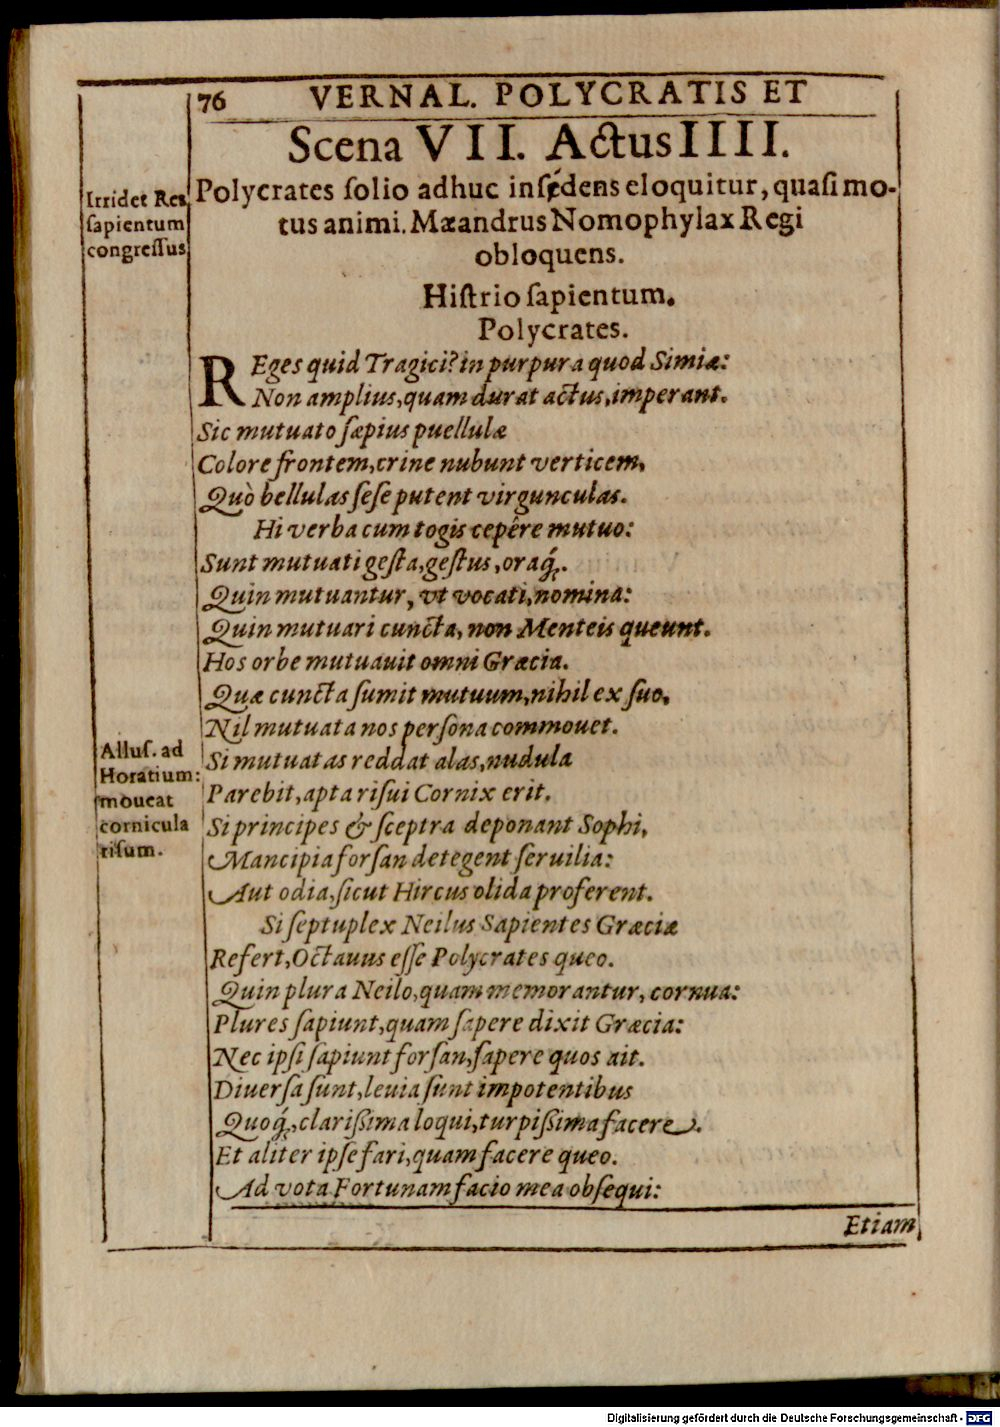 76 VERNAL. POLYCRATIS ET
Scena VII. Actus IIII.
Irridet Rex
sapientum
congressus
Polycrates solio adhuc insẹ́dens eloquitur, quasi mo-
tus animi. Mæandrus Nomophylax Regi
obloquens.
Histrio sapientum.
Polycrates.
REges quid Tragici? in purpura quod Simiæ:
Non amplius, quam durat actus, imperant.
Sic mutuato sæpius puellulæ
Colore frontem, crine nubunt verticem,
Quò bellulas sese putent virgunculas.
Hi verba cum togis cepêre mutuo:
Sunt mutuati gesta, gestus, oraq́;.
Quin mutuantur, vt vocati, nomina:
Quin mutuari cuncta, non Menteis queunt.
Hos orbe mutuauit omni Græcia.
Quæ cuncta sumit mutuum, nihil ex suo,
Nil mutuata nos persona commouet.
Allus. ad
Horatium:
moueat
cornicula
risum.
Si mutuatas reddat alas, nudula
Parebit, apta risui Cornix erit.
Si principes & sceptra deponant Sophi,
Mancipia forsan detegent seruilia:
Aut odia, sicut Hircus olida proferent.
Si septuplex Neilus Sapientes Græciæ
Refert, Octauus esse Polycrates queo.
Quin plura Neilo, quam memorantur, cornua:
Plures sapiunt, quam sapere dixit Græcia:
Nec ipsi sapiunt forsan, sapere quos ait.
Diuersa sunt, leuia sunt impotentibus
Quoq́;, clarissima loqui, turpissima facere.
Et aliter ipse fari, quam facere queo.
Ad vota Fortunam facio mea obsequi:
Etiam
Digitalisierung gefördert durch die Deutsche Forschungsgemeinschaft - DFG